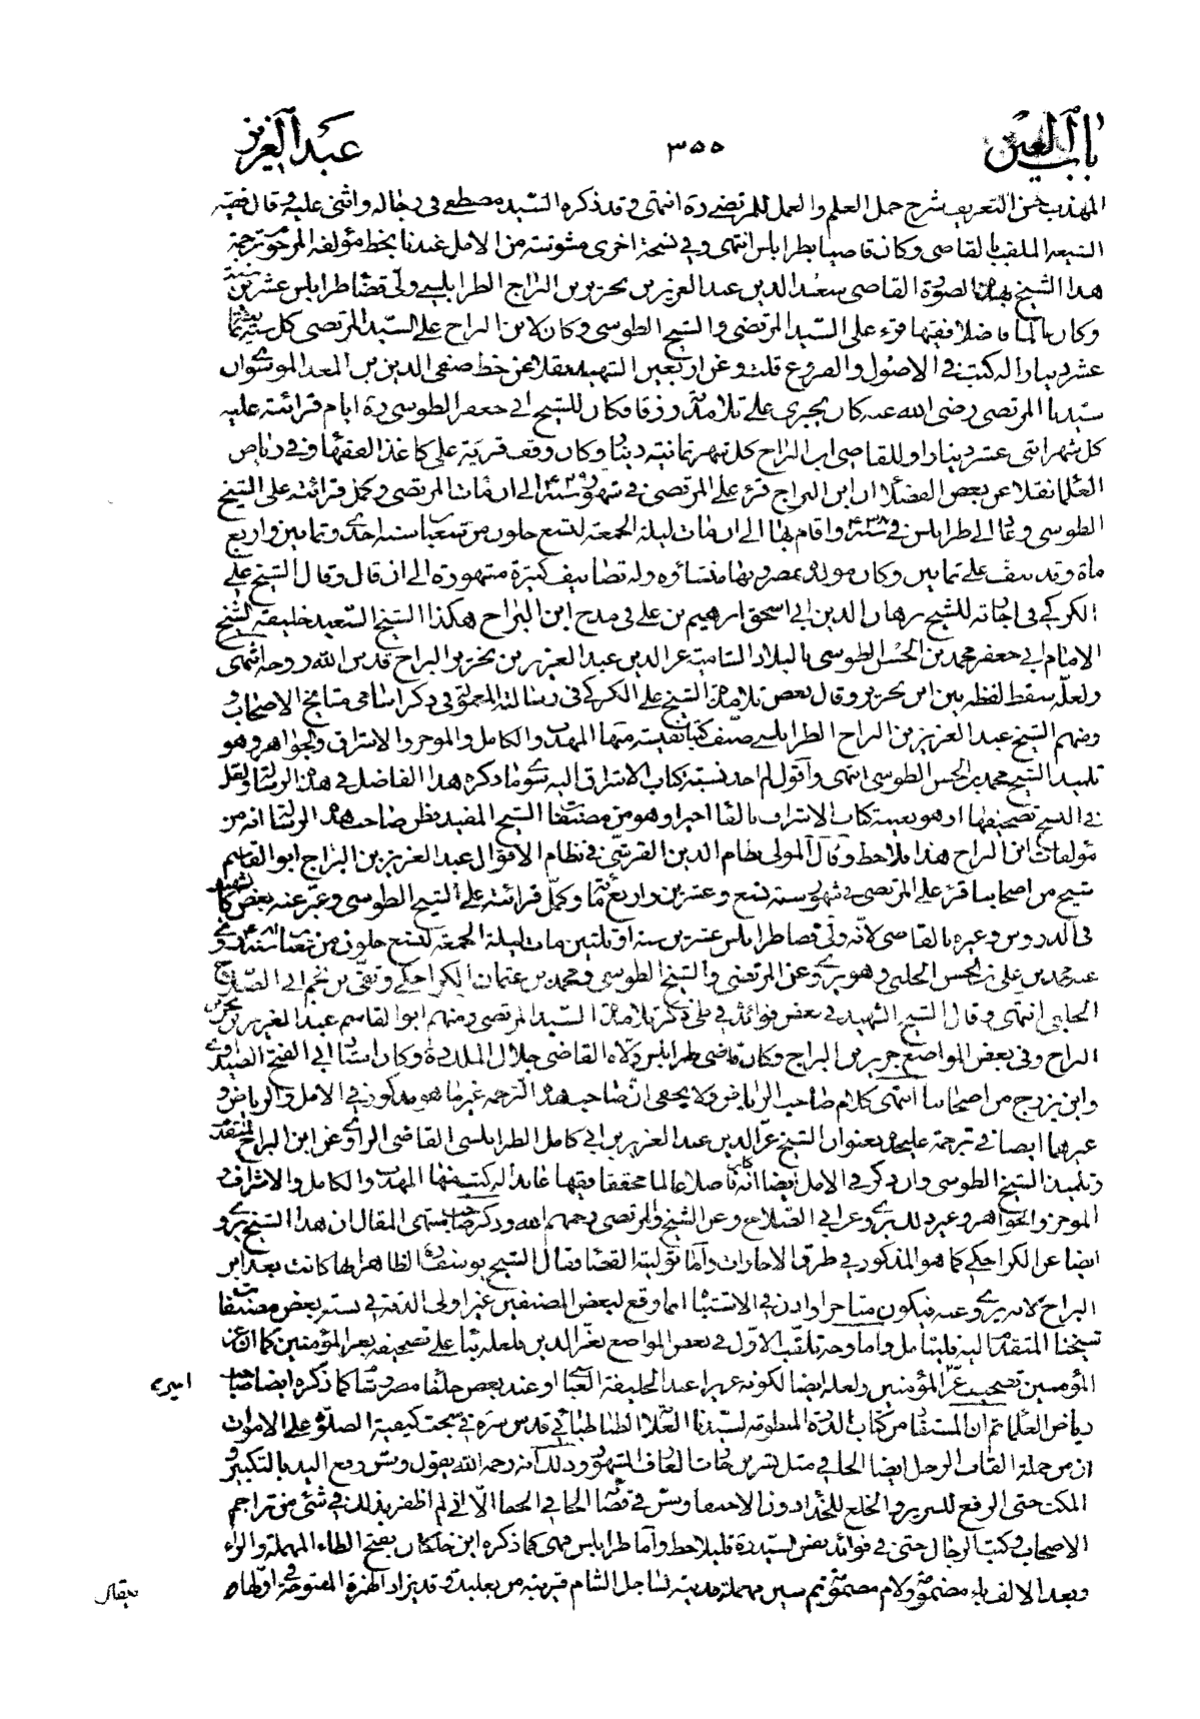 باب العين ٣٥٥ عبد العزيز
المهذب حسن التعريف شرح جمل العلم والعمل للمرتضى ره انتهى وقد ذكره السيد مصطفى في رجاله واثنى عليه وقال فقيه
الشيعه الملقب بالقاضى وكان قاضيا بطرابلس انتهى وفي نسخة اخرى من الامل عندنا بخط مؤلفه المرحوم ترجمة
هذا الشيخ بهذه الصورة القاضى سعد الدين عبد العزيز بن نحرير بن البراج الطرابلسى ولى قضا طرابلس عشرين سنة
وكان عالما فاضلا فقيها قرء على السيد المرتضى والشيخ الطوسى وكان لابن البراج على السيد المرتضى كل شهر ثمانية
عشر دينارا له كتب في الاصول والفروع قلت وعن اربعين الشهيد نقلا عن خط صفى الدين بن المعد الموسوى ان
سيدنا المرتضى رضى الله عنه كان يجرى على تلامذته رزقا فكان للشيخ ابى جعفر الطوسى ره ايام قرائته عليه
كل شهر اثنى عشر دينارا وللقاضى ابن البراج كل شهر ثمانية دينارا وكان وقف قرية على كاغذ الفقهاء وفي رياض
العلماء نقلا عن بعض الفضلاء ان ابن البراج قرء على المرتضى في شهور سنة ٤٢٩ الى ان مات المرتضى وكمل قرائته على الشيخ
الطوسى وعاد الى طرابلس في سنة ٤٣٨ واقام بها الى ان مات ليلة الجمعة لتسع خلون من شعبان سنه احدى وثمانين واربع
ماة وقد نيف على ثمانين وكان مولده بمصر وبها منشاؤه وله تصانيف كثيرة مشهورة الى ان قال وقال الشيخ على
الكركى في اجازته للشيخ برهان الدين ابى اسحق ابرهيم بن على في مدح ابن البراج هكذا الشيخ السعيد خليفة الشيخ
الامام ابى جعفر محمد بن الحسن الطوسى بالبلاد الشامية عز الدين عبد العزيز بن نحرير البراج قدس الله روحه انتهى
ولعله سقط لفظه بين ابن نحرير وقال بعض تلامذة الشيخ على الكركى في رسالته المعمولة في ذكر اسامى مشايخ الاصحاب و
ومنهم الشيخ عبد العزيز بن البراح الطرابلسى صنف كتبا نفيسة منها المهذب والكامل والموجز والاشراق والجواهر وهو
تلميذ الشيخ محمد بن الحسن الطوسى انتهى واقول لم اجد نسبة كتاب الاشراق اليه سوى ما ذكره هذا الفاضل في هذه الرسالة ولعل
في النسخ تصحيفها او هو بعينه كتاب الاشراف بالفاء اخيرا وهو من مصنفات الشيخ المفيد فظن صاحب هذه الرسالة انه من
مؤلفات ابن البراح هذا فلاحظ وقال المولى نظام الدين القرشى في نظام الاقوال عبد العزيز بن البراج ابو القاسم
شيخ من اصحابنا قرء على المرتضى في شهور سنة تسع وعشرين واربع مائة وكمل قرائته على الشيخ الطوسى وعبر عنه بعض كالشهيد
في الدروس وغيره بالقاضى لانه ولى قضا طرابلس عشرين سنه او ثلثين مات ليلة الجمعة لتسع خلون من شعبان سنة ٤٨١ يروى
عنه محمد بن على بن الحسن الحلبى وهو يروى عن المرتضى والشيخ الطوسى ومحمد بن عثمان الكراجكى وتقى بن نجم ابى الصلاح
الحلبى انتهى وقال الشيخ الشهيد في بعض فوائده في طى ذكر تلامذة السيد المرتضى ومنهم ابو القاسم عبد العزيز بن نحرير
البراح وفي بعض المواضع جرير بن البراج وكان قاضى طرابلس ولاه القاضى جلال الملك ره وكان استاد ابى الفتح الصيداوى
وابن بزرج من اصحابنا انتهى كلام صاحب الرياض ولا يخفى ان صاحب هذه الترجمة غير ما هو مذكور في الامل والرياض و
غيرهما ايضا في ترجمة عليحده بعنوان الشيخ عز الدين عبد العزيز بن ابى كامل الطرابلسى القاضى الراوى عن ابن البراج المتقدم
وتلميذ الشيخ الطوسى وان ذكر في الامل ايضا انه كان فاضلا عالما محققا فقيها عابدا له كتب منها المهذب والكامل والاشراف و
الموجز والجواهر وغير ذلك يروى عن ابى الصلاح وعن الشيخ والمرتضى رحمهم الله وذكر صاحب منتهى المقال ان هذا الشيخ يروى
ايضا عن الكراجكى كما هو المذكور في طرق الاجازات واما توليته القضا فقال الشيخ يوسف ره الظاهر انها كانت بعد ابن
البراج لانه يروى عنه فيكون متاخرا واذن في الاشتباه انما وقع لبعض المصنفين غير اولى الدقة في نسبة بعض مصنفات
شيخنا المتقدم اليه فليتامل واما وجه تلقب الاول في بعض المواضع بعز الدين فلعله بناء على تصحيفه بعز المؤمنين كما ان عز
المؤمنين تصحيف عز المؤمنين ولعله ايضا لكونه عزيزا عند الخليفة العباسى او عند بعض خلفا مصر وشام كما ذكره ايضا صاحب اميره
رياض العلماء ثم ان المستفاد من كتاب الدرة المنظومة لسيدنا العلامة الطباطبائى قدس سره في مبحث كيفية الصلوة على الاموات
ان من جملة القاب الرجل ايضا الحلبى في مثل بشر بن ذلك انه رحمه الله يقول وسن رفع اليد بالتكبير و
المكث حتى الرفع للسرير والخلع للحذاء دون الاحتفاء وسن في قضاء الحافى الحفا الا انى لم اظفر بذلك في شئ من تراجم
الاصحاب وكتب الرجال حتى في فوائد نفس السيد ره فليلاحظ واما طرابلس فهى كما ذكره ابن خلكان بفتح الطاء المهملة والراء
وبعد الالف باء مضمومة ولام مضمومة ثم سين مهملة مدينة بساحل الشام قريبة من بعلبك وقد يزاد الهمزة المفتوحة في اولها
فيقال